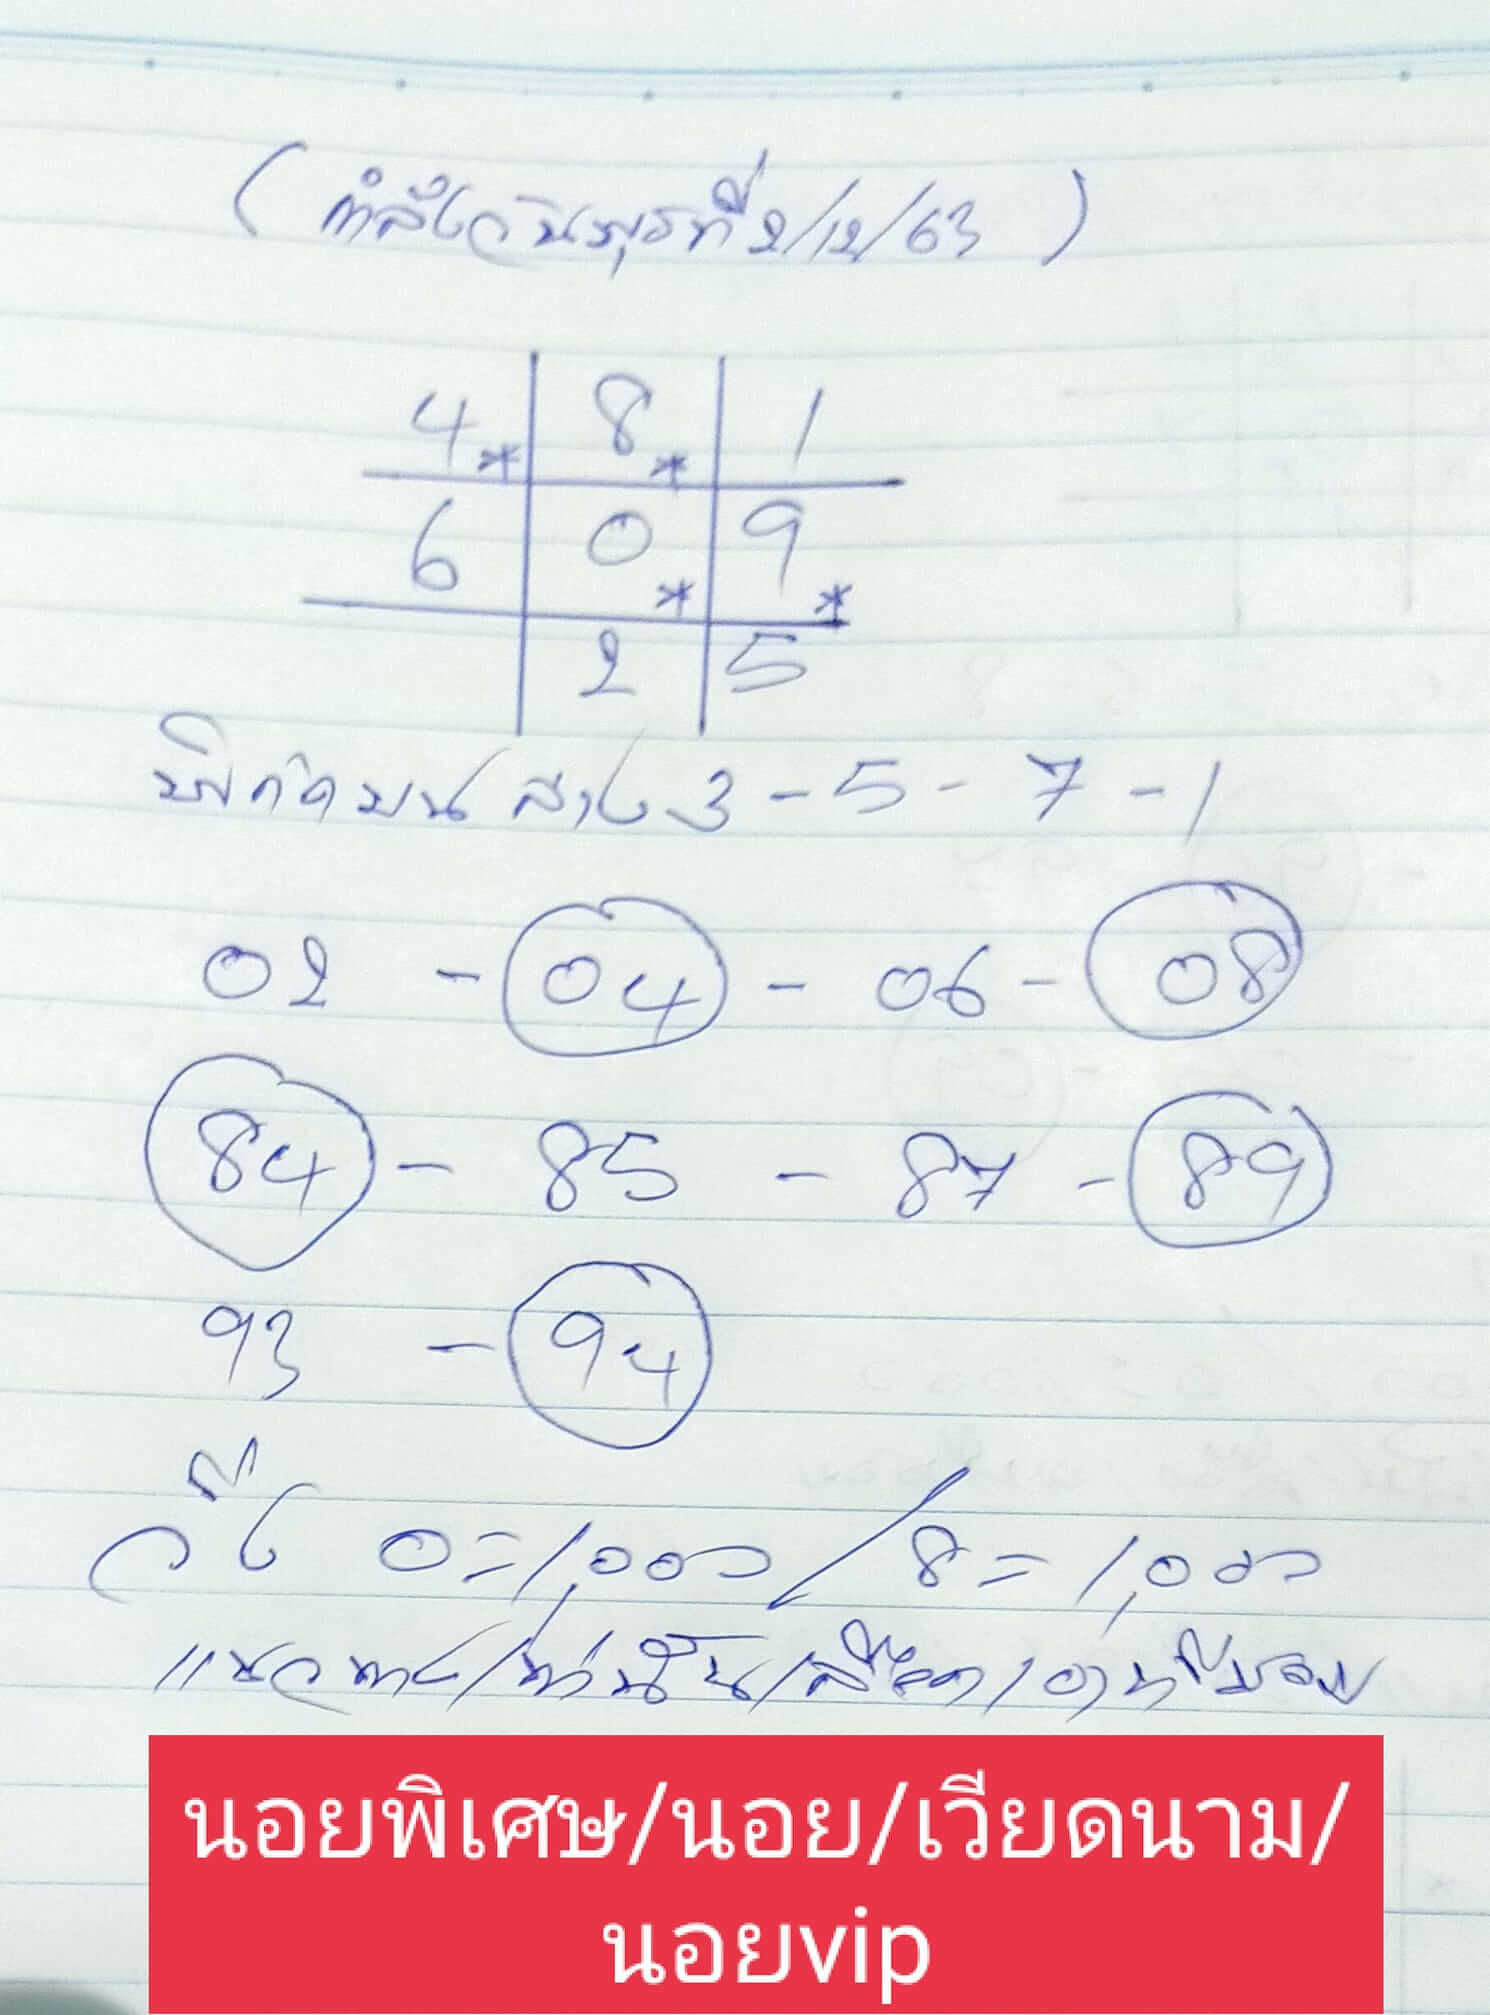 (กำลังวันพุธที่2/12/63)
4* 8* 1
6 0* 9*
2 5
พิกัดบน ล่าง 3-5-7-1
02 - 04 - 06 - 08
84 - 85 - 87 - 89
93 - 94
วิ่ง 0=1,000/8=1,000
แนวทาง/เท่านั้น/
นอยพิเศษ/นอย/เวียดนาม/
นอยvip